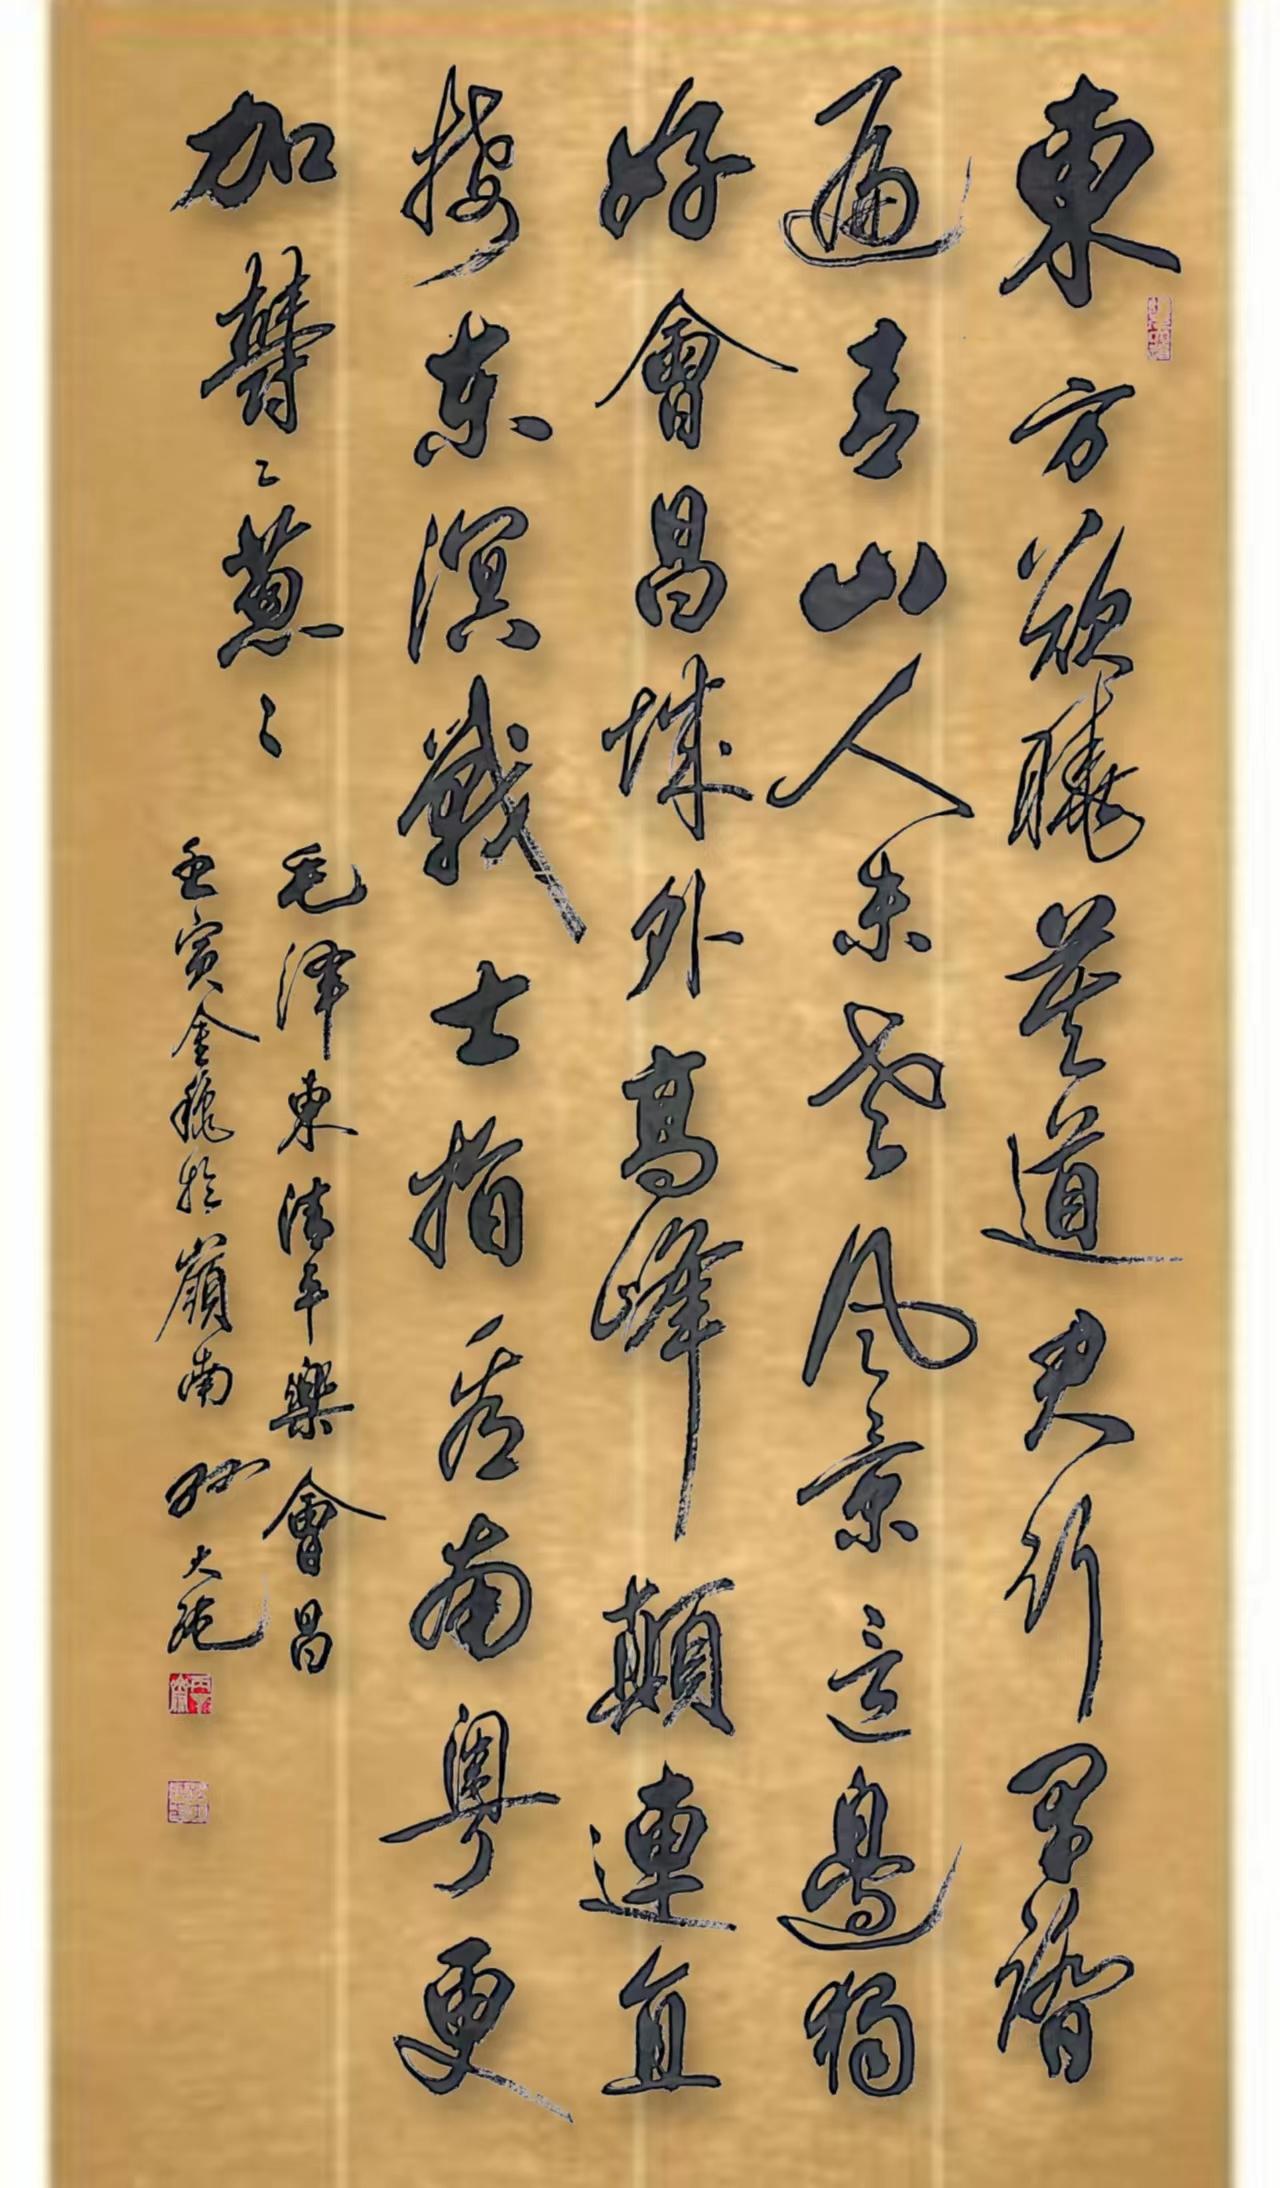 東方欲曉莫道君行早踏
遍青山人未老風景這邊獨
好會昌城外高峰顛連直
接東溟戰士指看南粵更
加鬱〻蔥〻
毛澤東清平樂會昌
壬寅金穐於嶺南